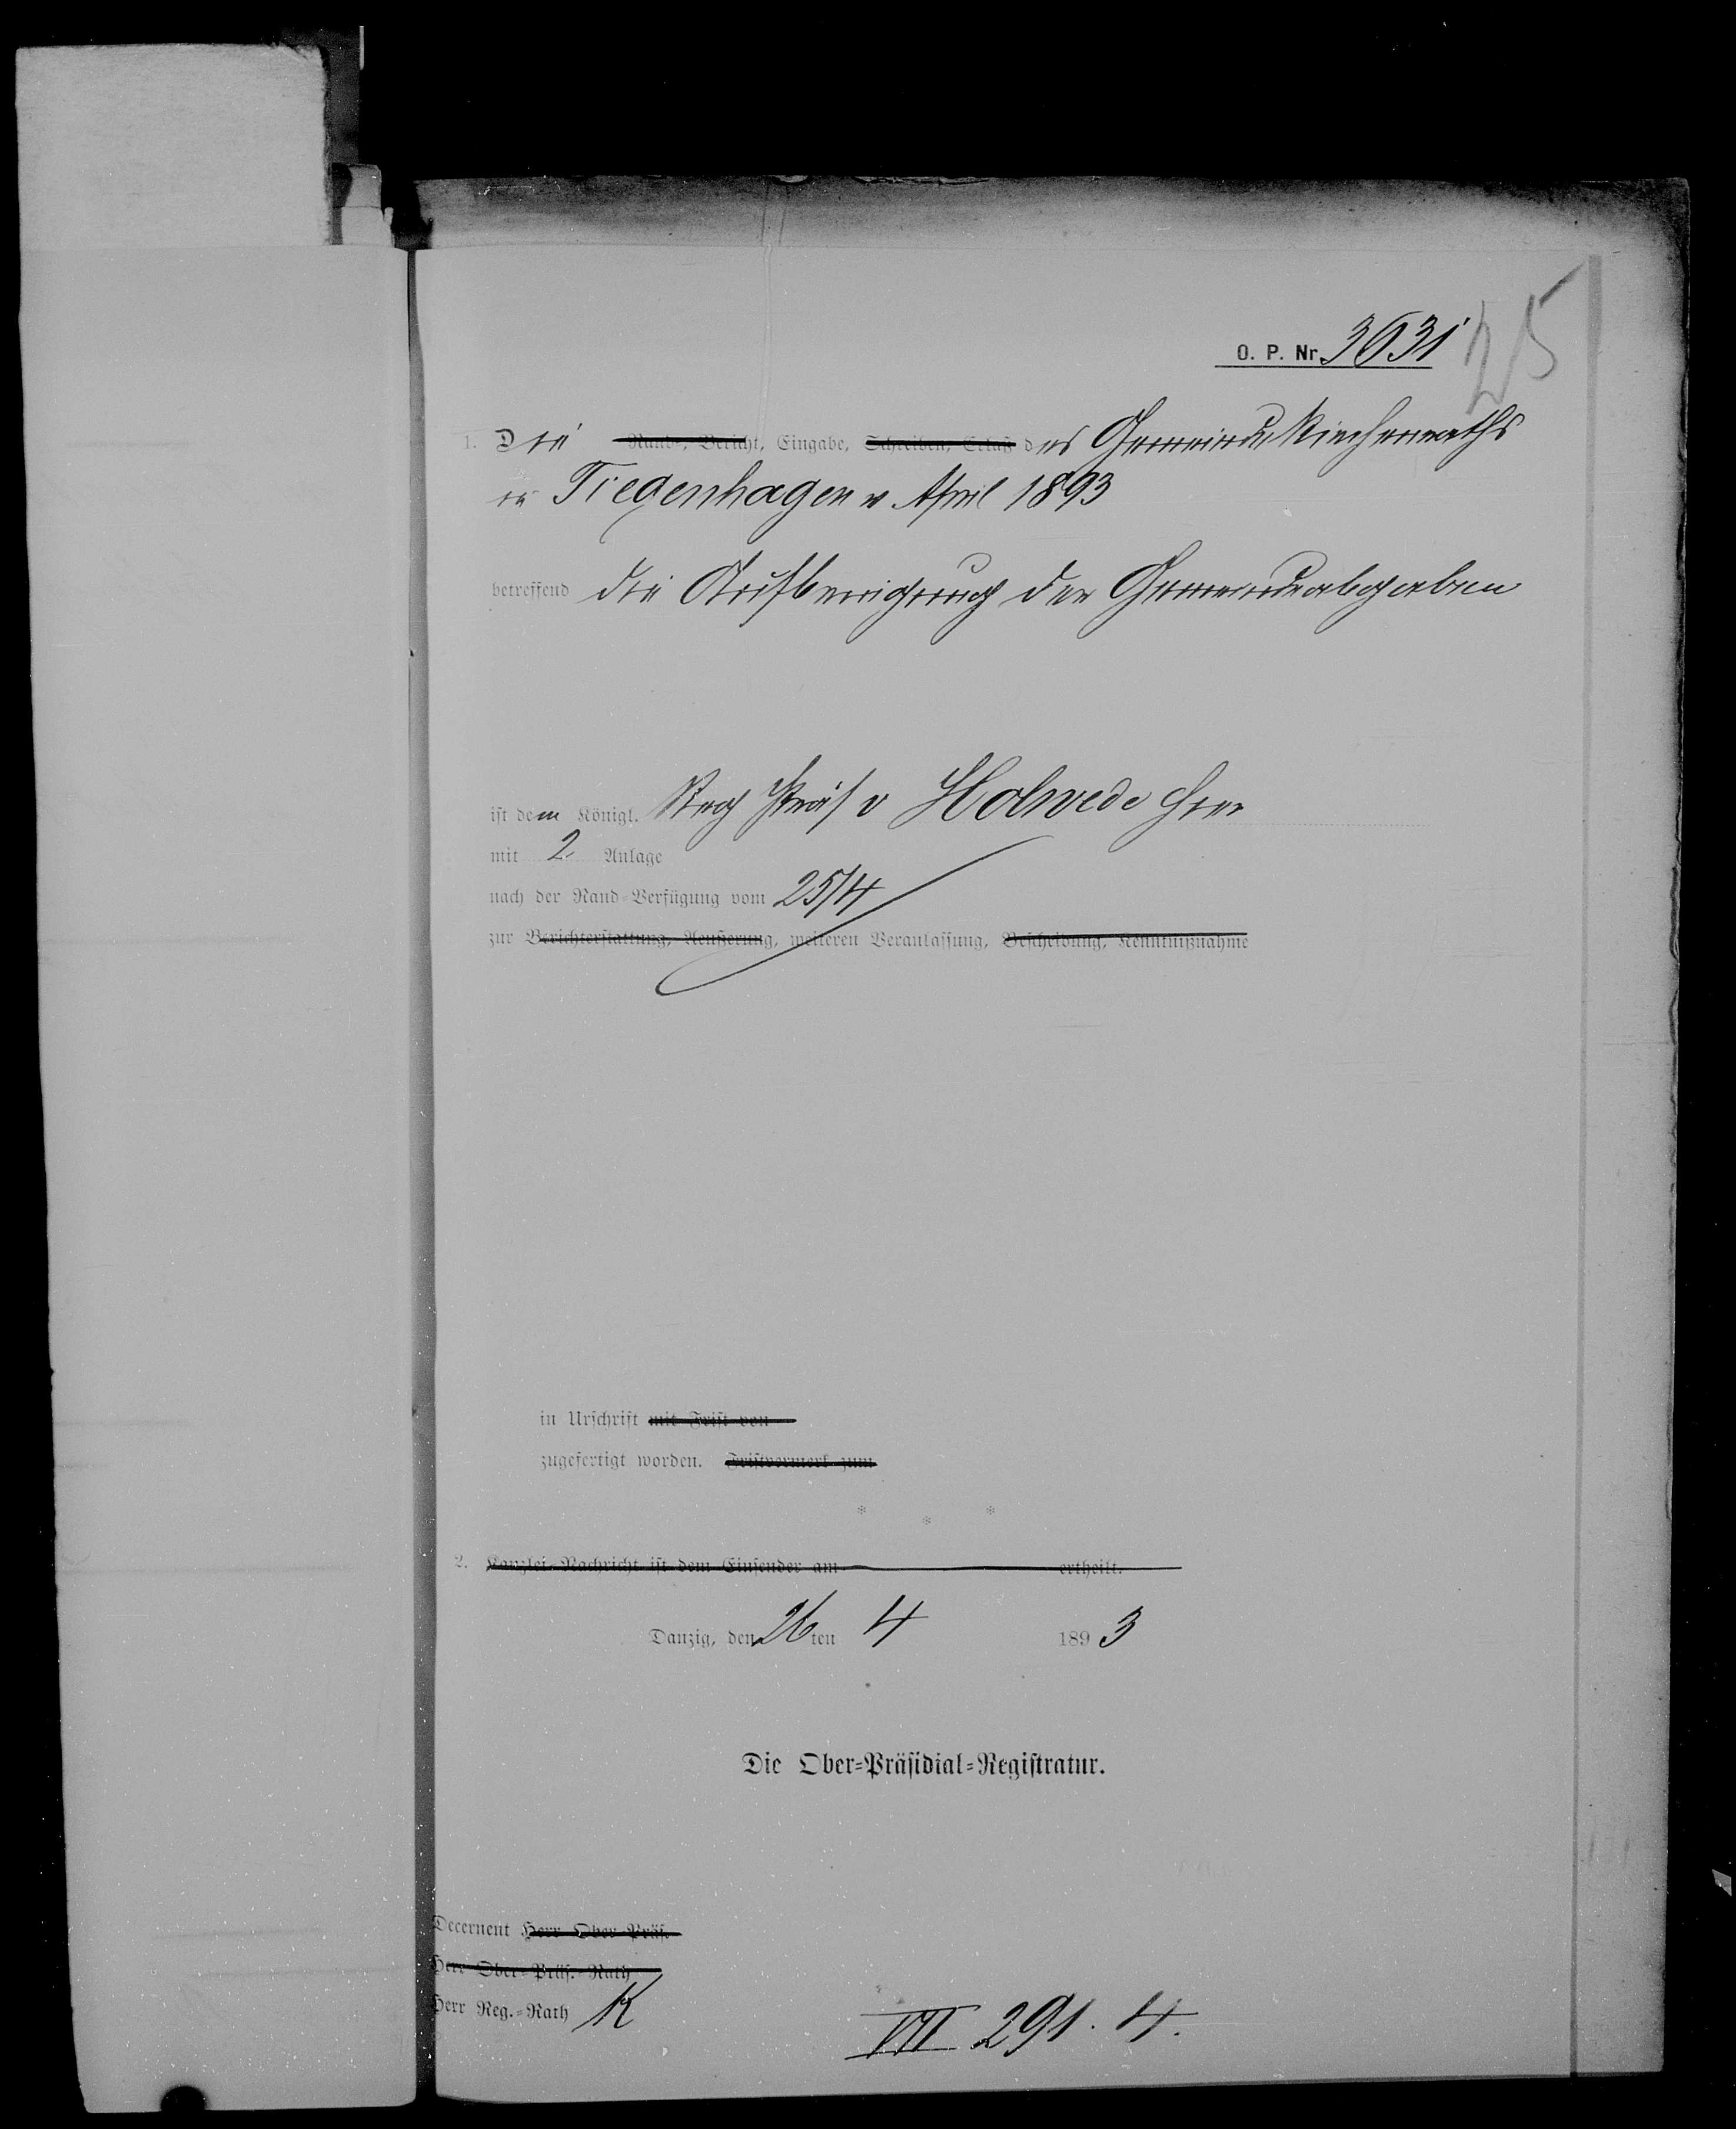 O. P. Nr. 3631
25
1. Die Rand-, Bericht, Eingabe, Schreiben, Erlaß des Gemeinde Kirchenraths
in Tiegenhagen v. April 1893
betreffend die Aufbringung der Gemeindeabgaben
ist dem Königl. Reg Präs v Holwede hier
mit 2 Anlage
nach der Rand-Verfügung vom 25/4
zur Berichterstattung, Aeußerung, weiteren Veranlassung, Bescheidung, Kenntnißnahme
in Urschrift mit Frist von
zugefertigt worden. Fristvermerk zum
* * *
2. Kanzlei-Nachricht ist dem Einsender am ertheilt.
Danzig, den 26ten 4 1893
Die Ober-Präsidial-Registratur.
Decernent Herr Ober-Präs.
Herr Ober-Präs.-Rath
Herr Reg.-Rath K
VII 291. 4.